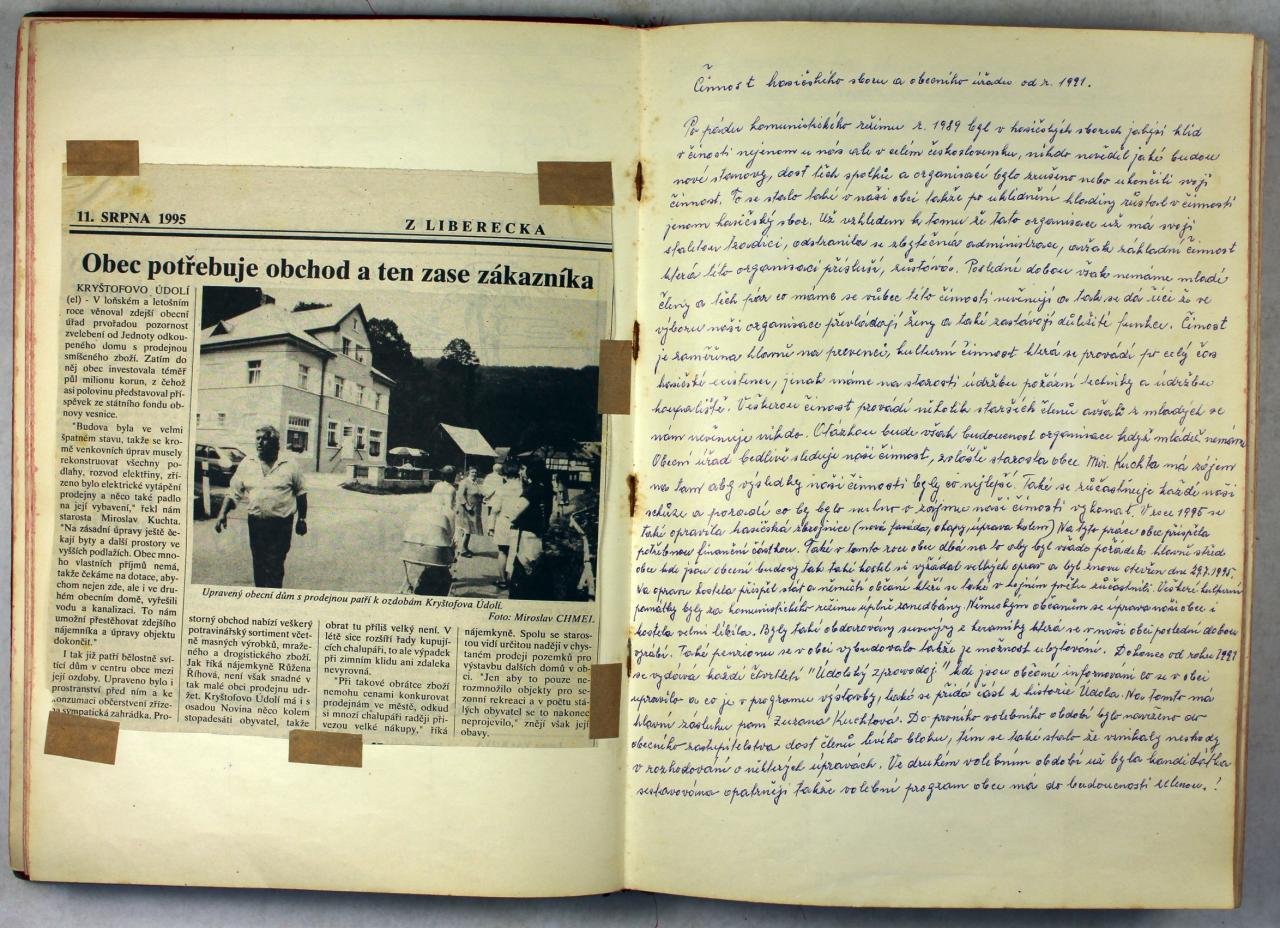 11. SRPNA 1995
Z LIBERECKA
Obec potřebuje obchod a ten zase zákazníka
KRYŠTOFOVO ÚDOLÍ
(el) - V loňském a letošním
roce věnoval zdejší obecní
úřad prvořadou pozornost
zvelebení od Jednoty odkou-
peného domu s prodejnou
smíšeného zboží. Zatím do
něj obec investovala téměř
půl milionu korun, z čehož
asi polovinu představoval pří-
spěvek ze státního fondu ob-
novy vesnice.
"Budova byla ve velmi
špatném stavu, takže se kro-
mě venkovních úprav musely
rekonstruovat všechny po-
dlahy, rozvod elektřiny, zří-
zeno bylo elektrické vytápění
prodejny a něco také padlo
na její vybavení," řekl nám
starosta Miroslav Kuchta.
"Na zásadní úpravy ještě če-
kají byty a další prostory ve
vyšších podlažích. Obec mno-
ho vlastních příjmů nemá,
takže čekáme na dotace, aby-
chom nejen zde, ale i ve dru-
hém obecním domě, vyřešili
vodu a kanalizaci. To nám
umožní přestěhovat zdejšího
nájemníka a úpravy objektu
dokončit."
I tak již patří bělostně sví-
tící dům v centru obce mezi
její ozdoby. Upraveno bylo i
prostranství před ním a ke
konzumaci občerstvení zříze-
na sympatická zahrádka. Pro-
Upravený obecní dům s prodejnou patří k ozdobám Kryštofova Údolí.
Foto: Miroslav CHMEL
storný obchod nabízí veškerý
potravinářský sortiment včet-
ně masných výrobků, mraže-
ného a drogistického zboží.
Jak říká nájemkyně Růžena
Říhová, není však snadné v
tak malé obci prodejnu udr-
žet. Kryštofovo Údolí má i s
osadou Novina něco kolem
stopadesáti obyvatel, takže
obrat tu příliš velký není. V
létě sice rozšíří řady kupují-
cích chalupáři, to ale výpadek
při zimním klidu ani zdaleka
nevyrovná.
"Při takové obrátce zboží
nemohu cenami konkurovat
prodejnám ve městě, odkud
si mnozí chalupáři raději při-
vezou velké nákupy," říká
nájemkyně. Spolu se staros-
tou vidí určitou naději v chys-
taném prodeji pozemků pro
výstavbu dalších domů v ob-
ci. "Jen aby to pouze ne-
rozmnožilo objekty pro se-
zonní rekreaci a v počtu stá-
lých obyvatel se to nakonec
neprojevilo," znějí však její
obavy.
Činnost hasičského sboru a obecního úřadu od r. 1991.
Po pádu komunistického režimu r. 1989 byl v hasičských sborech jakýsi klid
v činosti nejenom u nás ale v celém československu, nikdo nevěděl jaké budou
nové stanovy, dost těch spolků a organisací bylo zrušeno nebo ukončili svoji
činnost. To se stalo také v naši obci takže po uklidnění hladiny zůstal v činnosti
jenom hasičský sbor. Už vzhledem k tomu že tato organisace už má svoji
staletou tradici, odstranila se zbytečná administrace, avšak základní činnost
která této organisaci přísluší, zůstává. Poslední dobou však nemáme mladé
členy a těch pár co mame se vůbec této činnosti nevěnují a tak se dá říci že ve
výboru naši organisace převládají ženy a také zastávají důležité funkce. Činost
je zaměřina hlavně na prevenci, kulturní činnost která se provádí po celý čas
hasičské existence, jenak máme na starosti údržbu požární techniky a údržbu
koupaliště. Veškerou činost provádí několik starších členů avšak z mladých se
nám nevěnuje nikdo. Otázkou bude však budoucnost organisace když mládež nemáme
Obecní úřad bedlivě sleduje naši činnost, zvláště starosta obce Mir. Kuchta má zájem
na tom aby výsledky naší činnosti byly co nejlepší. Také se zůčastnuje každé naši
schůze a poradí co by bylo nutno v zájmu naší činosti vykonat. V roce 1995 se
také opravila hasičská zbrojnice (nová fasáda, okapy, úprava kolem) Na tyto práce obec přispěla
potřebnou finanční částkou. Také v tomto roce obec dbá na to aby byl všude pořádek hlavně střed
obce kde jsou obecní budovy tak také kostel si vyžádal velkých oprav a byl znovu otevřen dne 29.7.1995.
Na opravu kostela přispěl stát a němečtí občané kteří se také v hojném počtu zůčastnili. Veškeré kulturní
památky byly za komunistického režimu uplně zanedbány. Německým občanům se úprava naši obce i
kostela velmi líbila. Byly také obdarovány suvenýry z keramiky která se v naši obci poslední dobou
vyrábí. Také penzionu se v obci vybudovalo takže je možnost ubytování. Dokonce od roku 1991
se vydává každé čtvrtletí "Údolský zpravodaj" kde jsou občané informováni co se v obci
upravilo a co je v programu výstavby, také se přidá část z historie Údola. Na tomto má
hlavní zásluhu paní Zuzana Kuchtova. Do prvního volebního období bylo navrženo do
obecního zastupitelstva dost členů levého bloku, tím se také stalo že vznikaly neshody
v rozhodování o některých upravách. Ve druhém volebním období už byla kandidátka
sestavována opatrněji takže volební program obce má do budoucnosti zelenou.!